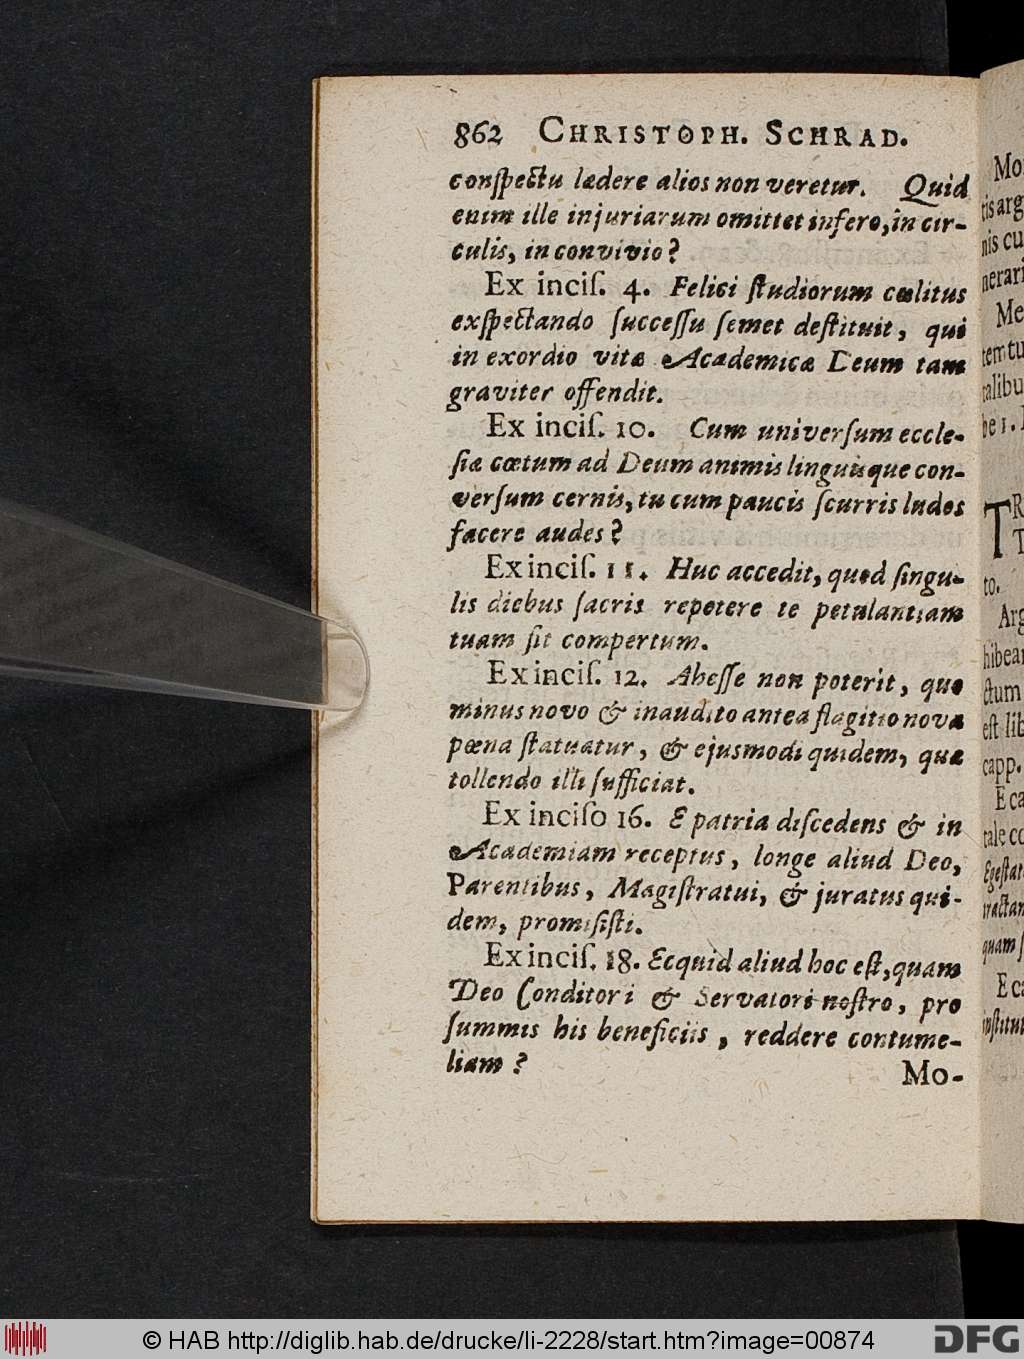 862 CHRISTOPH. SCHRAD.
conſpectu lædere alios non veretur. Quid
enim ille injuriarum omittet in fero, in cir-
culis, in convivio?
Ex inciſ. 4. Felici ſtudiorum cœlitus
exſpectando ſucceſſu ſemet deſtituit, qui
in exordio vitæ Academicæ Deum tam
graviter offendit.
Ex inciſ. 10. Cum univerſum eccle-
ſiæ cœtum ad Deum animis linguisque con-
verſum cernis, tu cum paucis ſcurris ludos
facere audes?
Ex inciſ. 11. Huc accedit, quod ſingu-
lis diebus ſacris repetere te petulantiam
tuam ſit compertum.
Ex inciſ. 12. Abeſſe non poterit, quo
minus novo & inaudito antea flagitio nova
pœna ſtatuatur, & ejusmodi quidem, quæ
tollendo illi ſufficiat.
Ex inciſo 16. E patria diſcedens & in
Academiam receptus, longe aliud Deo,
Parentibus, Magiſtratui, & juratus qui-
dem, promiſiſti.
Ex inciſ. 18. Ecquid aliud hoc eſt, quam
Deo Conditori & Servatori noſtro, pro
ſummis his beneficiis, reddere contume-
liam?
Mo-
Mo
tis arg
nis cu
nerari
Me
tem tu
talibu
be 1.
TR
T
to.
Arg
hibear
ctum
eſt lib
capp.
E ca
tale co
Egeſtat
tractan
quam ſ
E ca
inſtitut
© HAB http://diglib.hab.de/drucke/li-2228/start.htm?image=00874
DFG